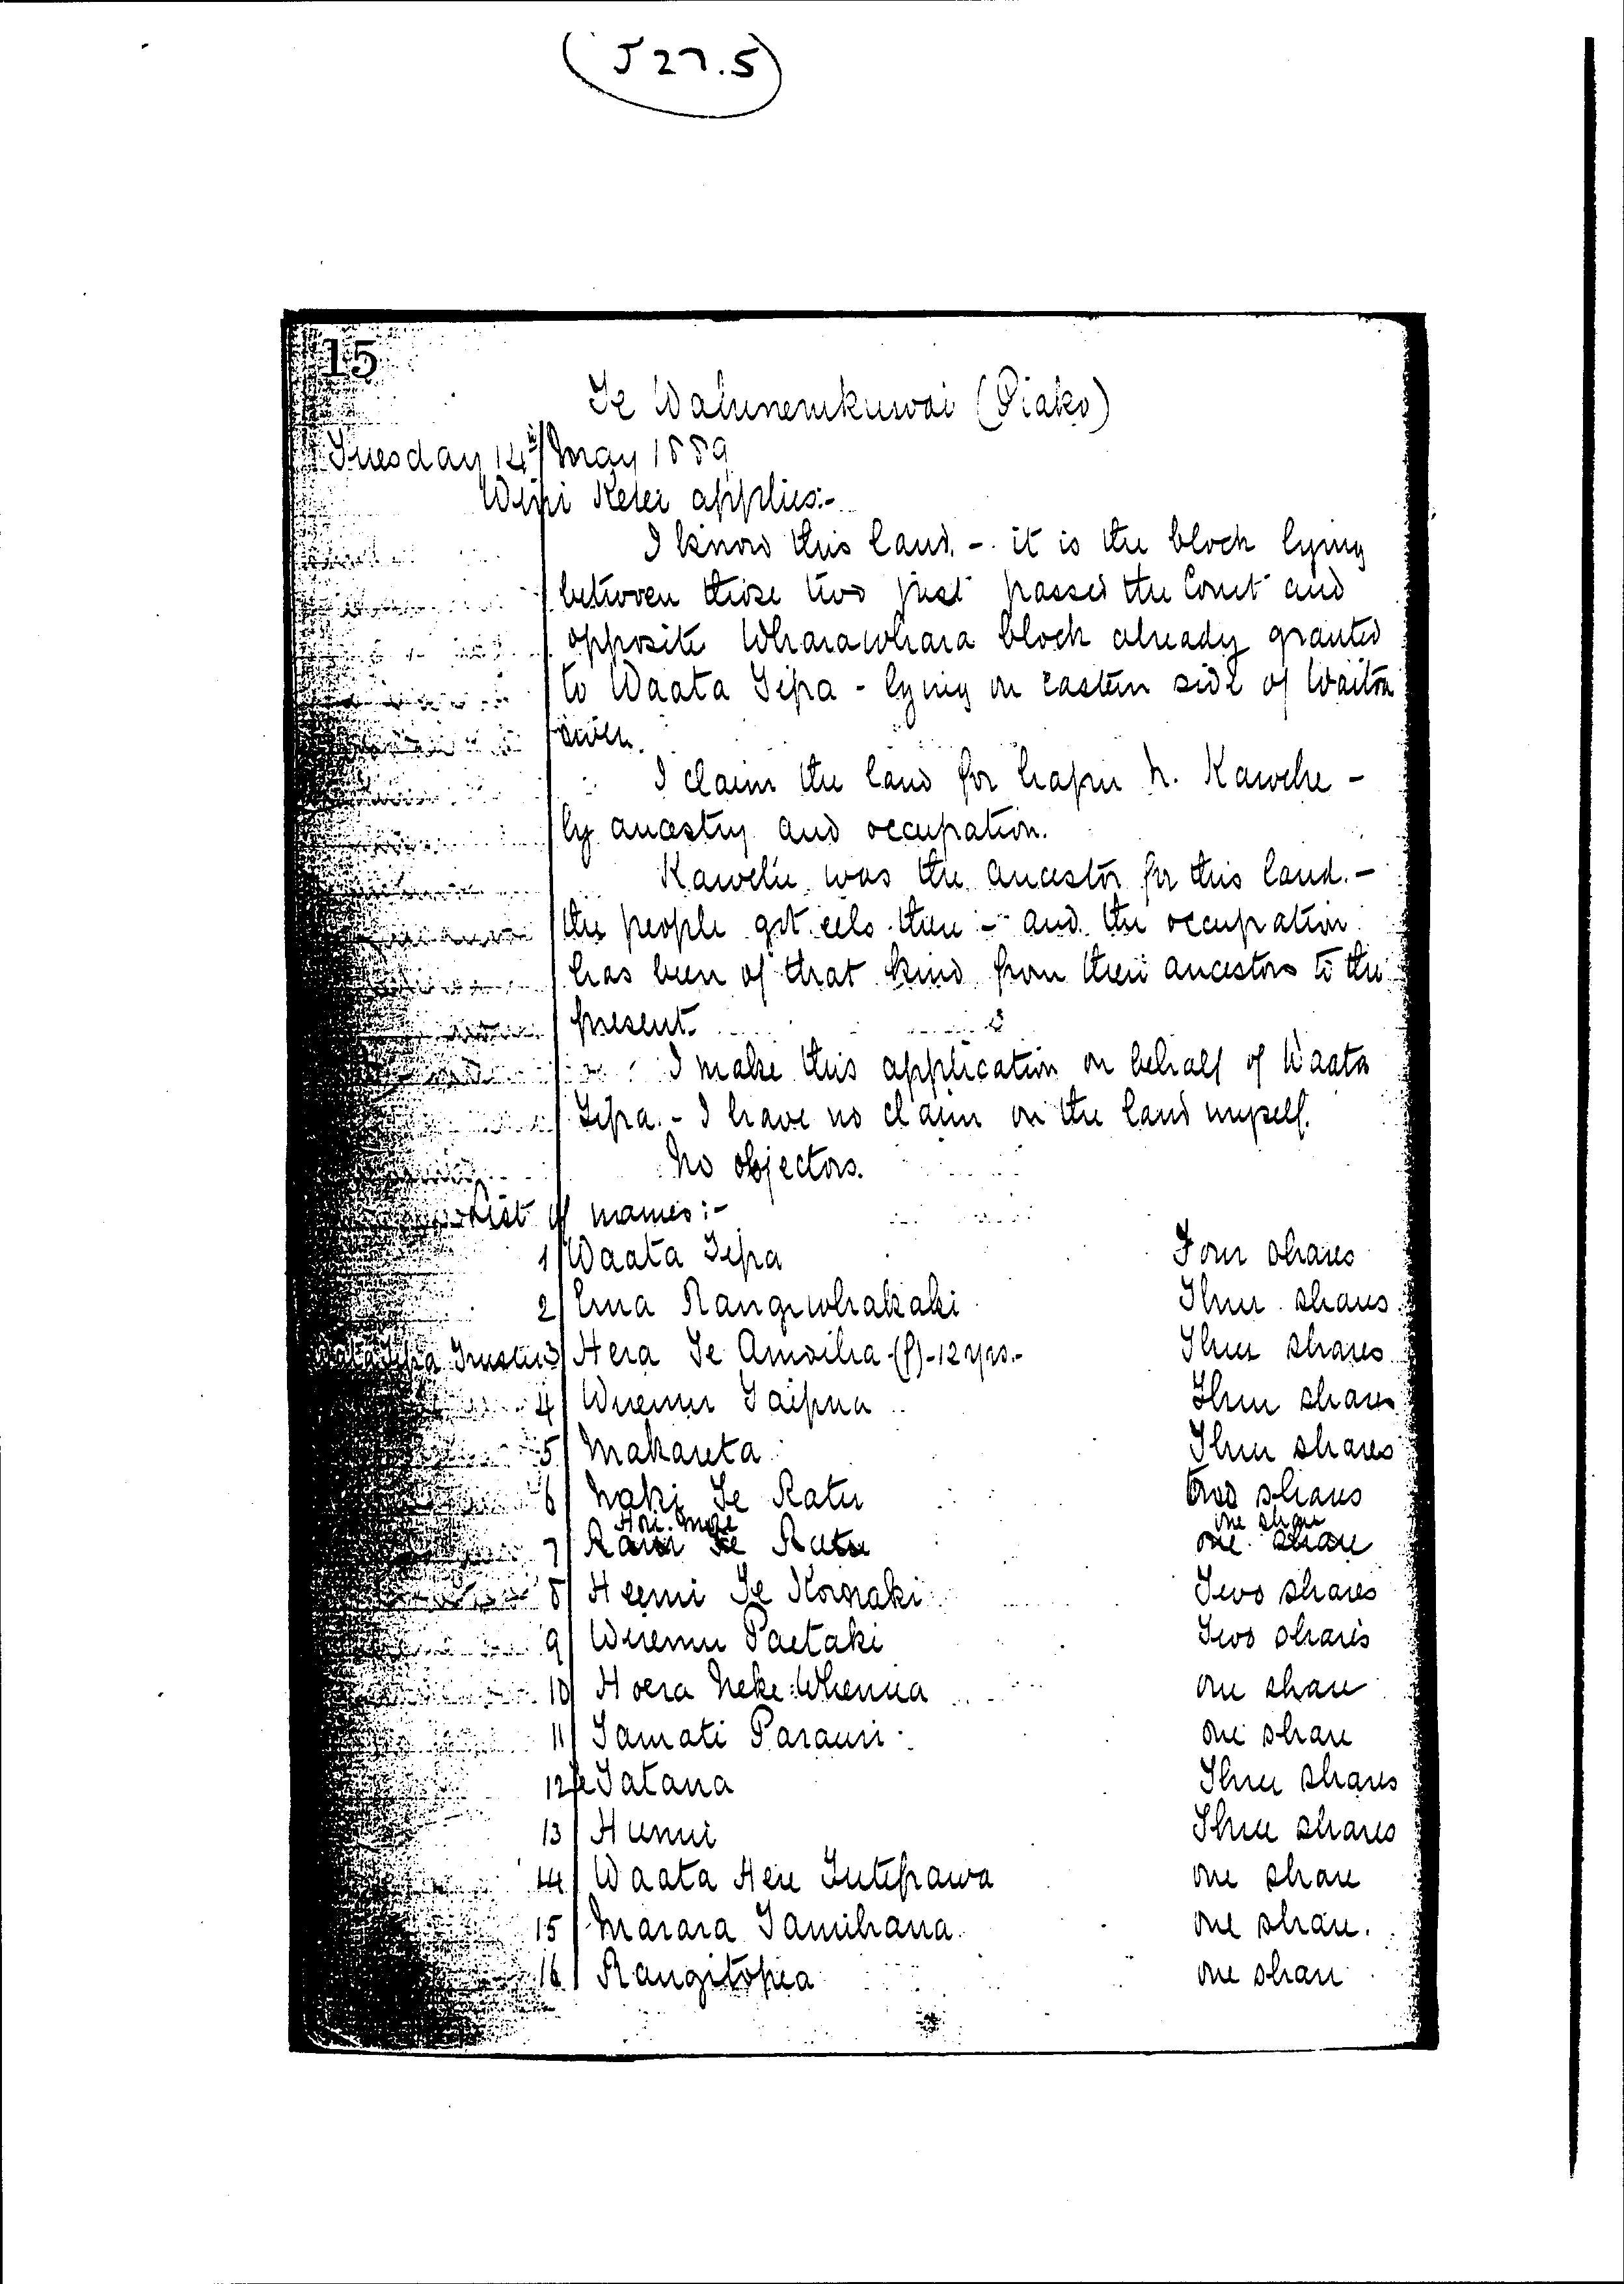 (J 27.5)
15
Te Wahinemkuwai (Piako)
Tuesday 14th May 1889
Wipi Kerei applies:-
I know this land. - it is the block lying
between those two just passed the Court and
opposite Wharawhara block already granted
to Waata Tipa - lying on eastern side of Waitoa
river.
I claim the land for hapu N. Kawehe -
by ancestry and occupation.
Kawehe was the ancestor for this land. -
the people got eels there - and the occupation
has been of that kind from their ancestors to the
present.
I make this application on behalf of Waata
Tipa. - I have no claim on the land myself.
No objectors.
List of names:-
1 Waata Tipa Four shares
2 Ema Rangiwhakaki Three shares
Waata Tipa Trustee 3 Hera Te Amoiha (f) - 12 yrs. - Three shares
4 Wiremu Taipua Three shares
5 Makareta Three shares
6 Naki Te Ratu two shares
Hori more one share
7 Te Ratu one share
8 Heemi Te Konaki Two shares
9 Wiremu Paetaki Two shares
10 Hoera Neke Whenua one share
11 Tamati Parauri one share
12 Te Tatana Three shares
13 Hunui Three shares
14 Waata Here Tutepawa one share
15 Marara Tamihana one share.
16 Rangitopea one share